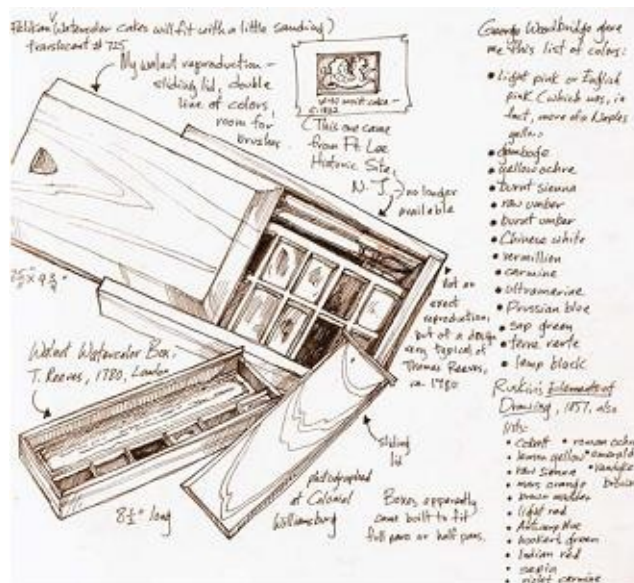 Pelikan Watercolor cakes will fit with a little sanding)
translucent # 725
My walnut reproduction -
sliding lid, double
line of colors,
room for
brushes
(This one came
from Ft. Lee
Historic Site,
N. J.) no longer
available
Not an
exact
reproduction,
but of a design
very typical of
Thomas Reeves,
ca. 1780
Walnut Watercolor Box,
T. Reeves, 1780, London
8½" long
sliding
lid
photographed
at Colonial
Williamsburg
Boxes apparently
came built to fit
full pans or half pans.
George Woodbridge gave
me this list of colors:
• light pink or English
pink (which was, in
fact, more of a Naples
yellow
• gamboge
• yellow ochre
• burnt sienna
• raw umber
• burnt umber
• Chinese white
• vermillion
• carmine
• ultramarine
• Prussian blue
• sap green
• terre verte
• lamp black
Ruskin's Elements of
Drawing, 1857, also
lists:
• cobalt • roman ochre
• lemon yellow • emerald
• raw sienna
• mars orange
• brown madder
• light red
• Antwerp blue
• hookers green
• Indian red
• sepia
• violet carmine